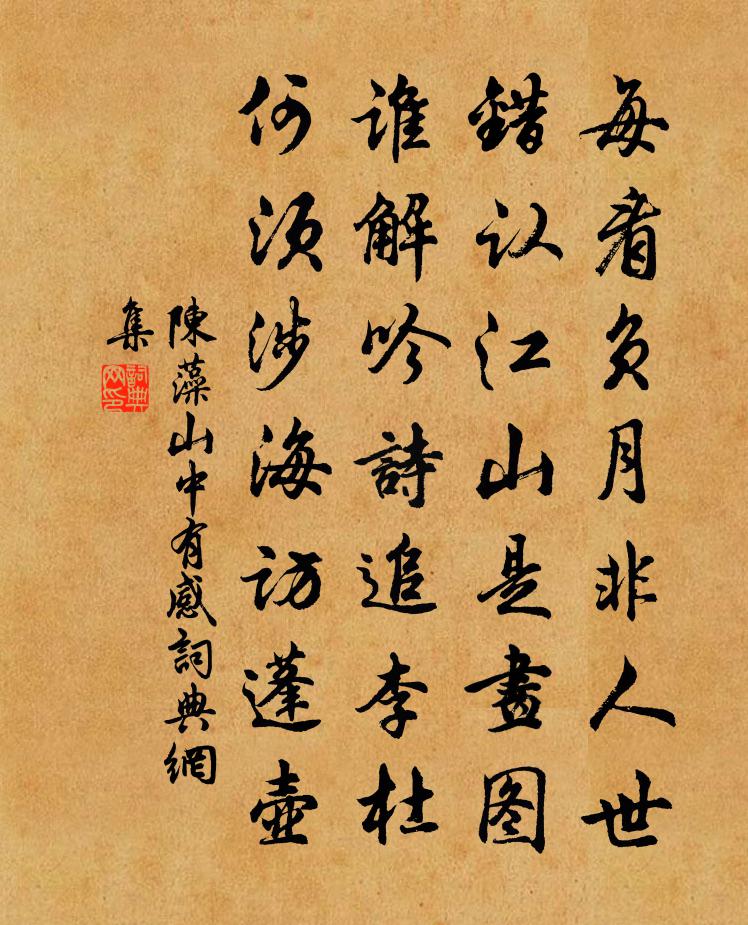 每看负月非人世
錯认江山是畫图
誰解吟詩追李杜
何須涉海訪蓬壺
陳藻山中有感詞典網
集
詞典
网印